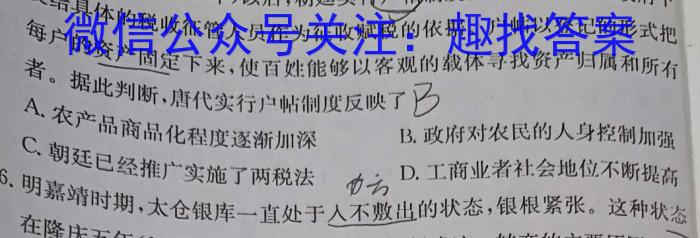 发给具体的税收征管人员作为征收赋税的依据。户帖以登记的形式把
微信公众号关注：趣找答案
每户的资产固定下来，使百姓能够以客观的载体寻找资产归属和所有
者。据此判断，唐代实行户帖制度反映了 B
A. 农产品商品化程度逐渐加深
B. 政府对农民的人身控制加强
C. 朝廷已经推广实施了两税法
D. 工商业者社会地位不断提高
6. 明嘉靖时期，太仓银库一直处于入不敷出的状态，银根紧张。这种状态
在隆庆五年